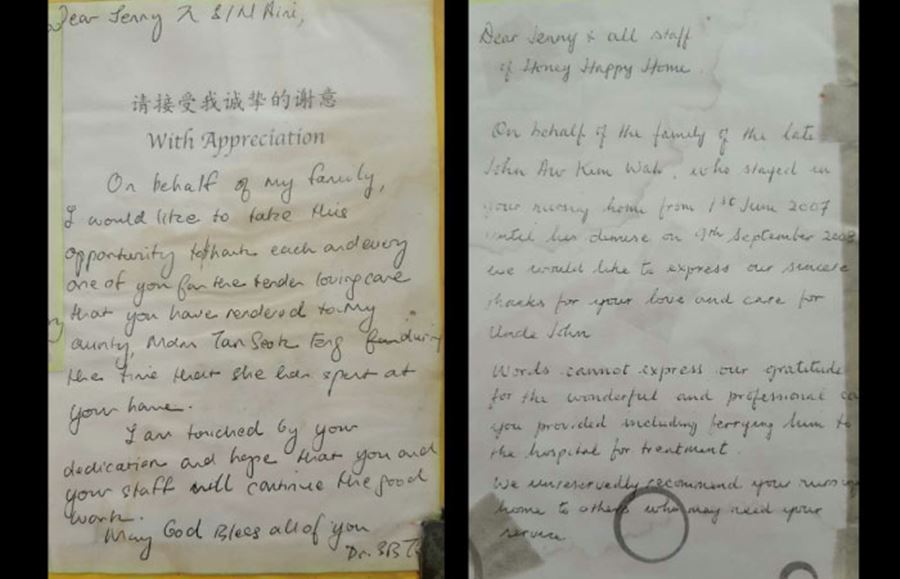 Dear Jenny & S/N Aini,
请接受我诚挚的谢意
With Appreciation
On behalf of my family,
I would like to take this
opportunity to thank each and every
one of you for the tender loving care
that you have rendered to my
aunty, Mdm Tan Seok Eng during
the time that she has spent at
your home.
I am touched by your
dedication and hope that you and
your staff will continue the good
work.
May God Bless all of you
Dr. SB
Dear Jenny & all staff
of Honey Happy Home.
On behalf of the family of the late
John Aw Kum Wah, who stayed in
your nursing home from 1st June 2007
until his demise on 9th September 2008
we would like to express our sincere
thanks for your love and care for
Uncle John
Words cannot express our gratitude
for the wonderful and professional
you provided including ferrying him to
the hospital for treatment.
We unreservedly recommend your nursing
home to others who may need your
service.